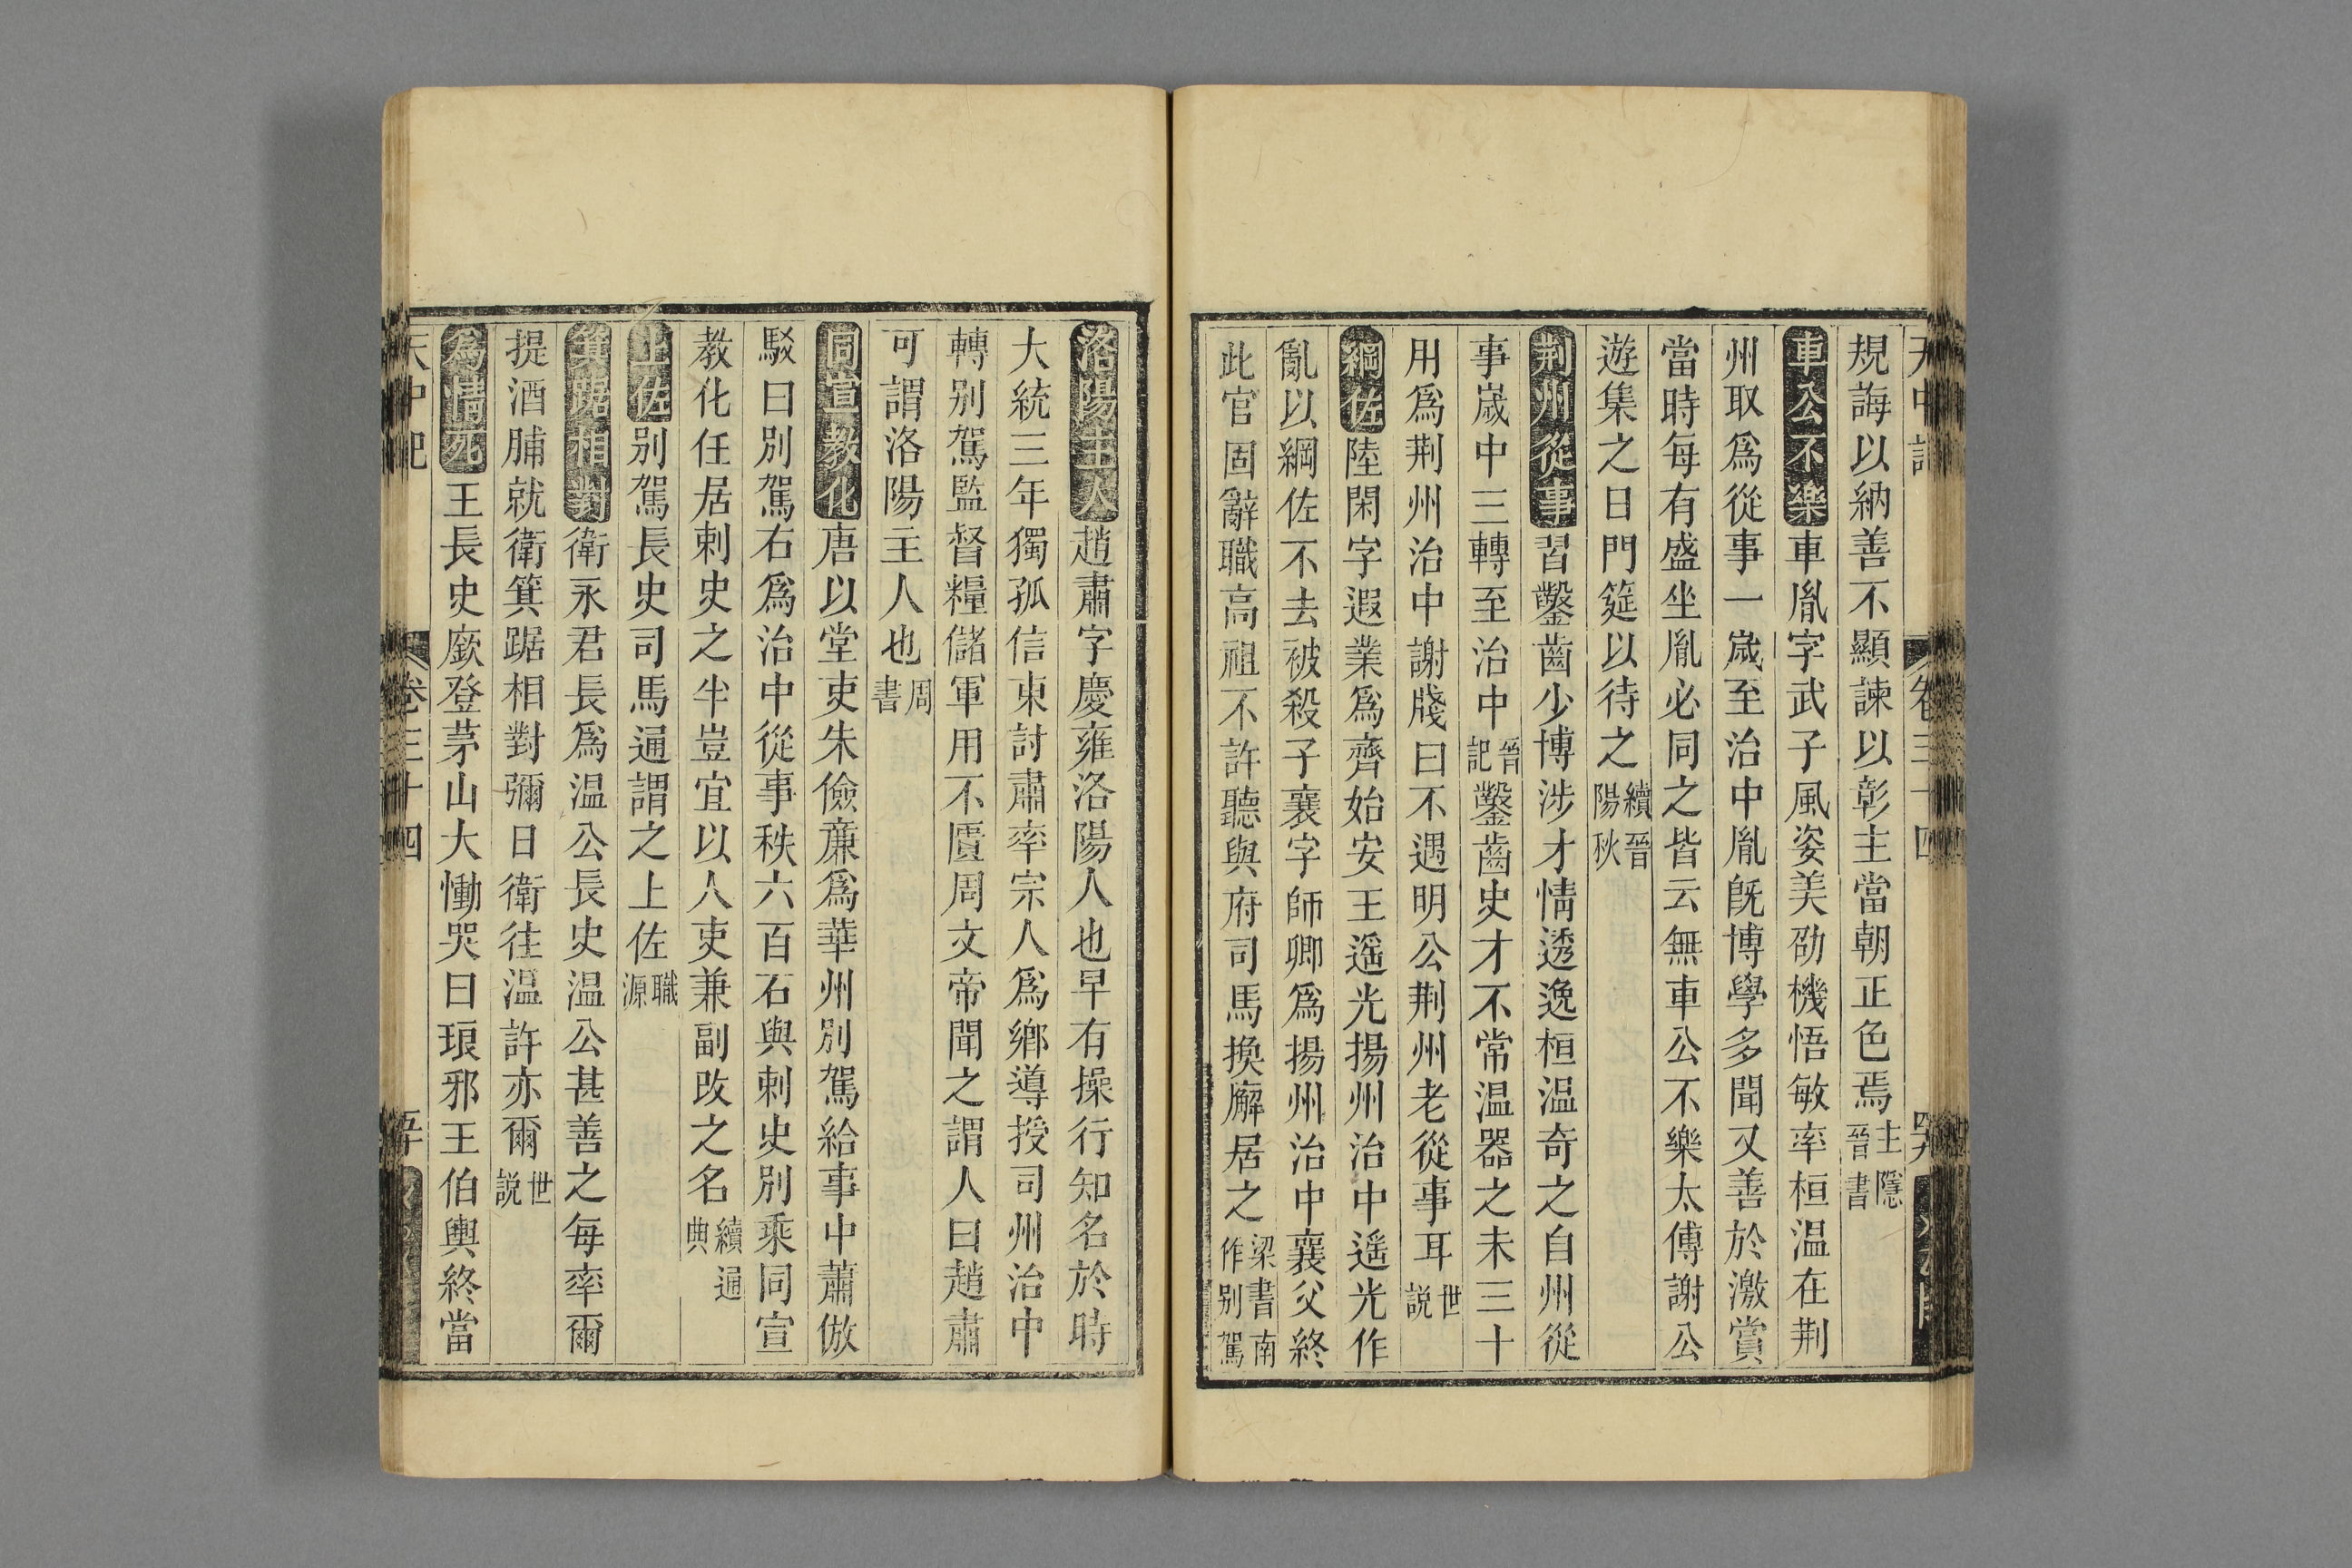 天中記 卷三十四
規誨以納善不顯諫以彰主當朝正色焉王隱晉書
車公不樂車胤字武子風姿美劭機悟敏率桓温在荆
州取爲從事一嵗至治中胤旣博學多聞又善於激賞
當時每有盛坐胤必同之皆云無車公不樂太傅謝公
遊集之日門筵以待之續晉陽秋
荆州從事習鑿齒少博涉才情透逸桓温奇之自州從
事嵗中三轉至治中晉記鑿齒史才不常温器之未三十
用爲荆州治中謝牋曰不遇明公荆州老從事耳世説
綱佐陸閑字遐業爲齊始安王遥光揚州治中遥光作
亂以綱佐不去被殺子襄字師卿爲揚州治中襄父終
此官固辭職高祖不許聽與府司馬換廨居之梁書南作别駕
洛陽主人趙肅字慶雍洛陽人也早有操行知名於時
大統三年獨孤信東討肅率宗人爲鄉導授司州治中
轉别駕監督糧儲軍用不匱周文帝聞之謂人曰趙肅
可謂洛陽主人也周書
同宣教化唐以堂吏朱儉亷爲華州别駕給事中蕭倣
駁曰別駕右爲治中從事秩六百石與刺史別乘同宣
教化任居刺史之半豈宜以人吏兼副改之名續通典
上佐别駕長史司馬通謂之上佐職源
箕踞相對衛永君長爲温公長史温公甚善之每率爾
提酒脯就衛箕踞相對彌日衛往温許亦爾世説
為情死王長史廞登茅山大慟哭曰琅邪王伯輿終當
天中記 卷三十四 五